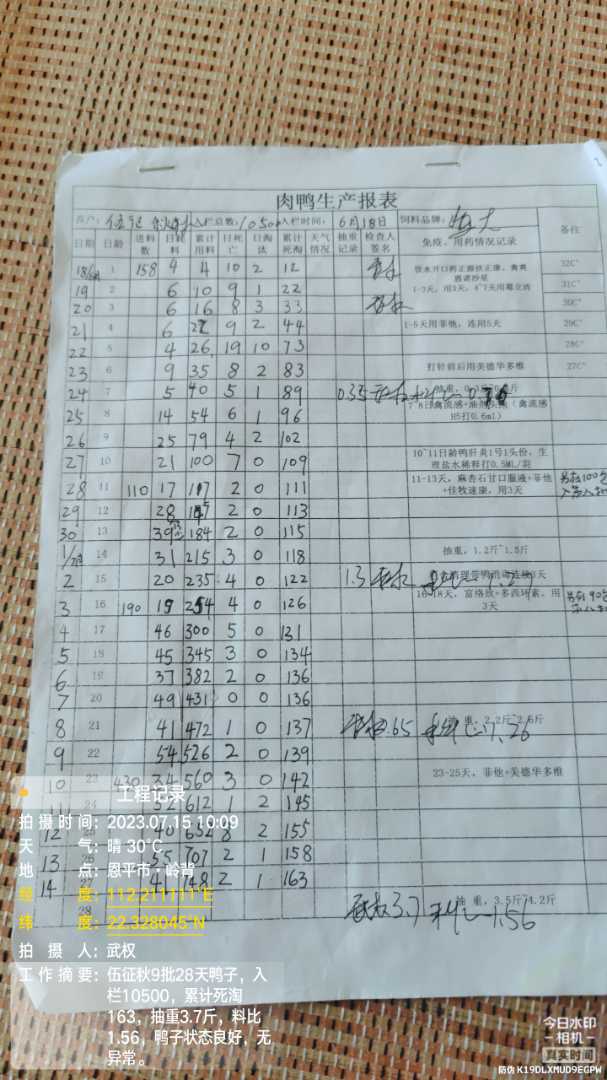 肉鸭生产报表
客户: 伍征秋 入栏总数: 10500 入栏时间: 6月18日 饲料品牌: 恒大
日期 日龄 进料数 日耗料 累计用料 日死亡 日淘汰 累计死淘 天气情况 抽重记录 检查人签名 免疫、用药情况记录 备注
18/6 1 158 4 4 10 2 12 32C°
饮水开口药正源
1-3天, 用3天, 4~7天用霉立清
19 2 6 10 9 1 22 31C°
20 3 6 16 8 3 33 30C°
21 4 6 22 9 2 44 1-5天用菲他, 连用5天 29C°
22 5 4 26 19 10 73 28C°
23 6 9 35 8 2 83 打针前后用美德华多维 27C°
24 7 5 40 5 1 89 0.35
25 8 14 54 6 1 96 7~8日禽流感+油 (禽流感H5打0.6mL)
26 9 25 79 4 2 102
27 10 21 100 7 0 109 10~11日龄鸭肝炎1号1头份, 生理盐水稀释打0.5ML/羽
28 11 110 17 117 2 0 111 11-13天, 麻杏石甘口服液+菲他+佳牧速康, 用3天
29 12 28 145 2 0 113
30 13 39 184 2 0 115
1/7 14 31 215 3 0 118 抽重, 1.2斤~1.5斤
2 15 20 235 4 0 122 1.3
3 16 190 19 254 4 0 126 16-18天, 富络欣+多西环素, 用3天
4 17 46 300 5 0 131
5 18 45 345 3 0 134
6 19 37 382 2 0 136
7 20 49 431 0 0 136
8 21 41 472 1 0 137 抽重, 2.2斤~2.6斤 1.26
9 22 54 526 2 0 139
10 23 430 34 560 3 0 142 23-25天, 菲他+美德华多维
11 24 52 612 1 2 145
12 40 652 8 2 155
13 55 707 2 1 158
14 41 748 2 1 163
28 抽重, 3.5斤~4.2斤 3.7 1.56
工程记录
拍摄时间: 2023.07.15 10:09
天气: 晴 30℃
地点: 恩平市·岭背
经度: 112.211111°E
纬度: 22.328045°N
拍摄人: 武权
工作摘要: 伍征秋9批28天鸭子，入
栏10500，累计死淘
163，抽重3.7斤，料比
1.56，鸭子状态良好，无
异常。
今日水印
相机
真实时间
防伪 K19DLXMUD9EGPW